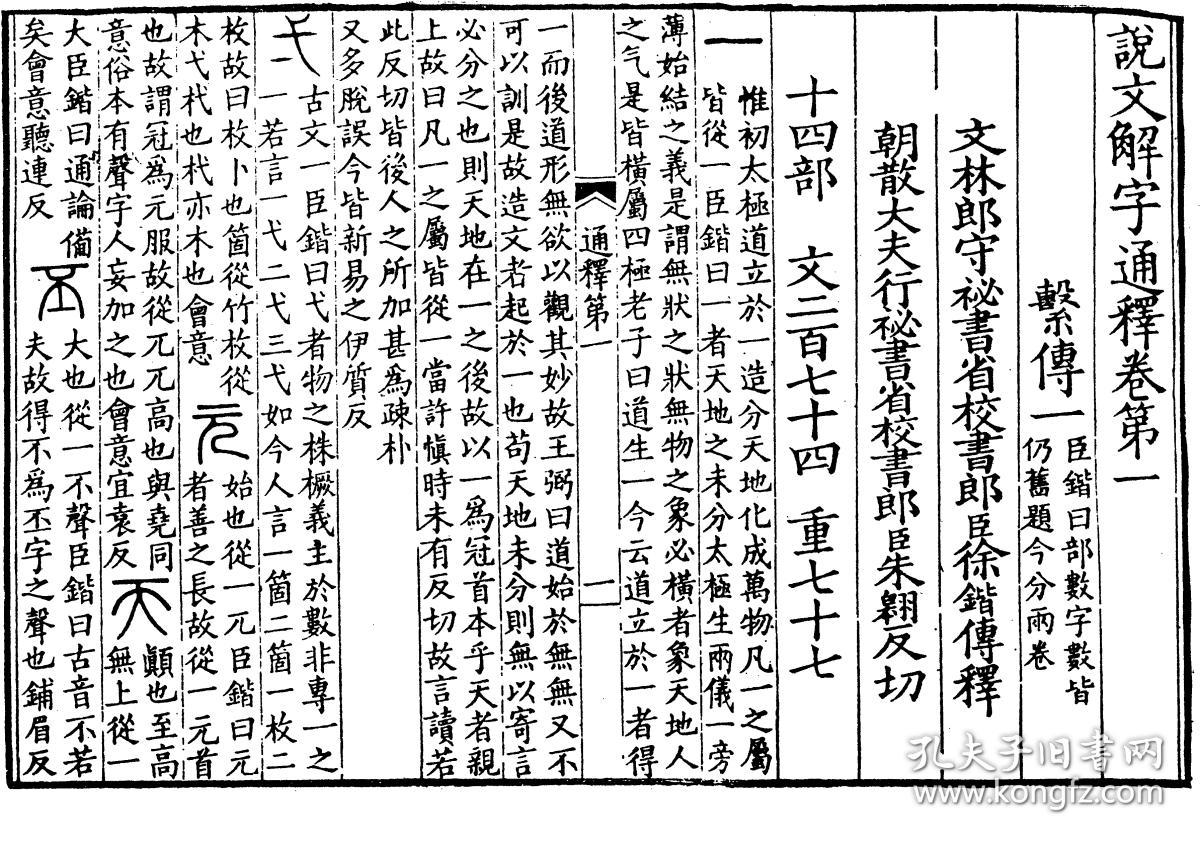 說文解字通釋卷第一
繫傳一
臣鍇曰部數字數皆
仍舊題今分兩卷
文林郎守祕書省校書郎臣徐鍇傳釋
朝散大夫行祕書省校書郎臣朱翱反切
十四部 文二百七十四 重七十七
一
惟初太極道立於一造分天地化成萬物凡一之屬
皆從一臣鍇曰一者天地之未分太極生兩儀一旁
薄始結之義是謂無狀之狀無物之象必橫者象天地人
之气是皆橫屬四極老子曰道生一今云道立於一者得
通釋第一
一
一而後道形無欲以觀其妙故王弼曰道始於無無又不
可以訓是故造文者起於一也苟天地未分則無以寄言
必分之也則天地在一之後故以一爲冠首本乎天者親
上故曰凡一之屬皆從一當許慎時未有反切故言讀若
此反切皆後人之所加甚爲疎朴
又多脫誤今皆新易之伊質反
弌
古文一臣鍇曰弋者物之株橛義主於數非專一之
一若言一弋二弋三弋如今人言一箇二箇一枚二
枚故曰枚卜也箇從竹枚從
木弋杙也杙亦木也會意
元
始也從一兀臣鍇曰元
者善之長故從一元首
也故謂冠爲元服故從兀兀高也與堯同
意俗本有聲字人妄加之也會意宜袁反
天
顚也至高
無上從一
大臣鍇曰通論備
矣會意聽連反
丕
大也從一不聲臣鍇曰古音不若
夫故得不爲丕字之聲也鋪眉反
孔夫子旧书网
www.kongfz.com